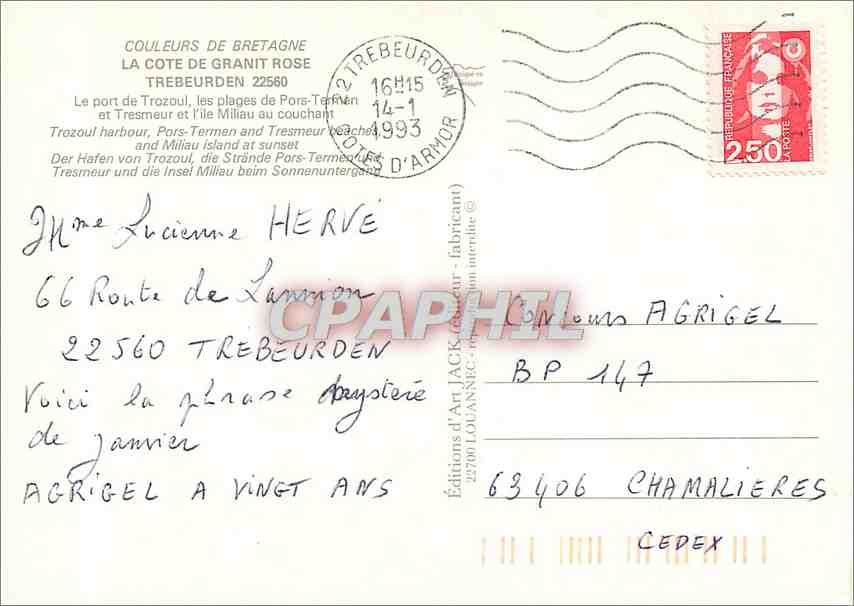 COULEURS DE BRETAGNE
LA COTE DE GRANIT ROSE
TREBEURDEN 22560
Le port de Trozoul, les plages de Pors-Termen
et Tresmeur et l'île Miliau au couchant
Trozoul harbour, Pors-Termen and Tresmeur beaches
and Miliau island at sunset
Der Hafen von Trozoul, die Strände Pors-Termen und
Tresmeur und die Insel Miliau beim Sonnenuntergang
22 TREBEURDEN
16H15
14-1
1993
COTES D'ARMOR
REPUBLIQUE FRANÇAISE
2,50
LA POSTE
Mme Lucienne HERVÉ
66 Route de Lannion
22560 TRÉBEURDEN
Voici la phrase mystère
de janvier
AGRIGEL A VINGT ANS
CPAPHIL
Éditions d'Art JACK (éditeur - fabricant)
22700 LOUANNEC - reproduction interdite ©
Concours AGRIGEL
BP 147
63406 CHAMALIERES
CEDEX